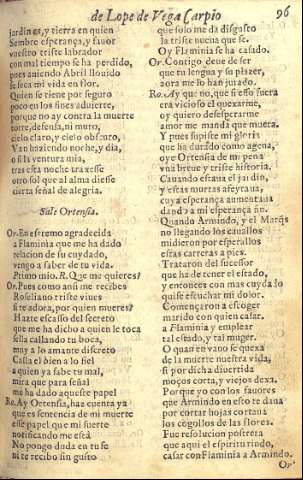 de Lope de Vega Carpio 96
jardines, y tierra en quien
Sembre esperança, y fauor
vuestro triste labrador
con mal tiempo se ha perdido,
pues auiendo Abril llouido
se seca mi vida en flor.
Quien se tiene por seguro
poco en los fines aduierte,
porque no ay contra la muerte
torre, defensa, ni muro,
cielo claro, y cielo obscuro,
Van haziendo noche, y dia,
o si la ventura mia,
tras esta noche traxesse
otro sol que al alma diesse
cierta señal de alegria.
Sale Ortensia.
Or. En estremo agradecida
a Flaminia que me ha dado
relacion de su cuydado,
vengo a saber de tu vida.
Primo mio. R. Que me quieres?
Or. Pues como ansi me recibes
Roseliano triste viues
si te adora, por quien mueres?
Hazte escasso del secreto
que me ha dicho a quien le toca
sella callando tu boca,
muy a lo amante discreto
Calla el bien a lo fiel
a quien ya sabe tu mal,
mira que para señal
me ha dado aqueste papel
Ro. Ay Ortensia, haz cuenta ya
que es sentencia de mi muerte
esse papel que mi suerte
notificando me està
No pongo duda en tu fe
Ni te recibo sin gusto
que solo me da disgusto
la triste nueua que se.
Oy Flaminia se ha casado.
Or. Contigo deue de ser
que tu lengua y su plazer,
aora me lo han jurado.
Ro. Ay que no, que si esso fuera
era vicioso el quexarme,
oy quiero desesperarme
amor me manda que muera.
Y pues supiste mi gloria
que ha durado como agena,
oye Ortensia de mi pena
vna breue y triste historia.
Cauando estaua el jardin,
y estas murtas afeytaua,
cuya esperança aumentaua
dando a mi esperança fin.
Quando Armindo, y el Marqs
no llegando los cauallos
midieron por esperallos
estas carreras a pies.
Trataron del sucessor
que ha de tener el estado,
y entonces con mas cuydado
quise escuchar mi dolor.
Començaron a escoger
marido con quien casar
a Flaminia y emplear
tal estado, y tal muger.
O quan en vano se quexa
de la muerte nuestra vida,
si por dicha diuertida
moços corta, y viejos dexa.
Porque yo con los fauores
que Armindo en esto te daua
por cortar hojas cortaua
los cogollos de las flores.
Fue resolucion postrera
que aqui el espiritu rindo,
casar con Flaminia a Armindo.
Or